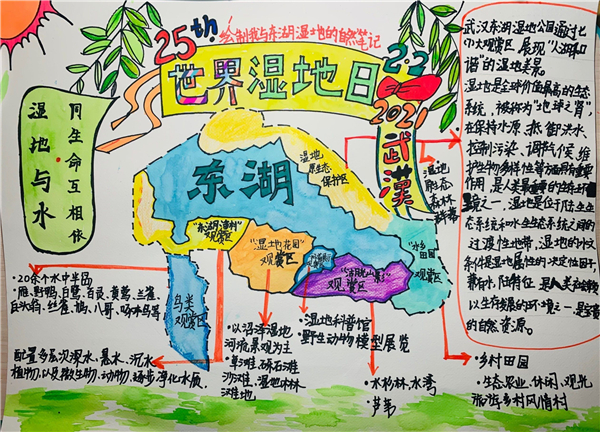 25th
绘制我与东湖湿地的自然笔记
世界湿地日
2.2
2021
武漢
湿地与水
同生命互相依
东湖
湿地
原生态
保护区
湿地
原态
森林
群落
"东湖渔村"
观赏区
"湿地花园"
观赏区
观赏区
"水乡
田园"
观赏区
鸟类
观赏区
·20余个水中半岛
·雁、野鸭、白鹭、百灵、黄莺、兰雀、
八哥
配置多层次深水、悬水、沉水
植物,以及微生物、动物,逐步净化水质。
·以沼泽湿地
河流景观为主
·草滩、砾石滩
沙滩、湿地林
滩地
·湿地科普馆
野生动物模型展览
·水杉林、水湾
·芦苇
·乡村田园
·生态农业、休闲、观光
旅游乡村风情村
武汉东湖湿地公园通过七
个大观赏区,展现"人湖和
谐"的湿地美景。
湿地是全球价值最高的生态
系统,被称为"地球之肾"
在保持水源、抵御洪水、
控制污染、调节气候、维
护生物多样性等方面有重要
作用,是人类最重要的生存环
境之一,湿地是位于陆生生
态系统和水生生态系统之间的
过渡性地带,湿地的水文
条件是湿地属性的决定性因子,
以生存发展的环境之一,是宝贵
的自然资源。